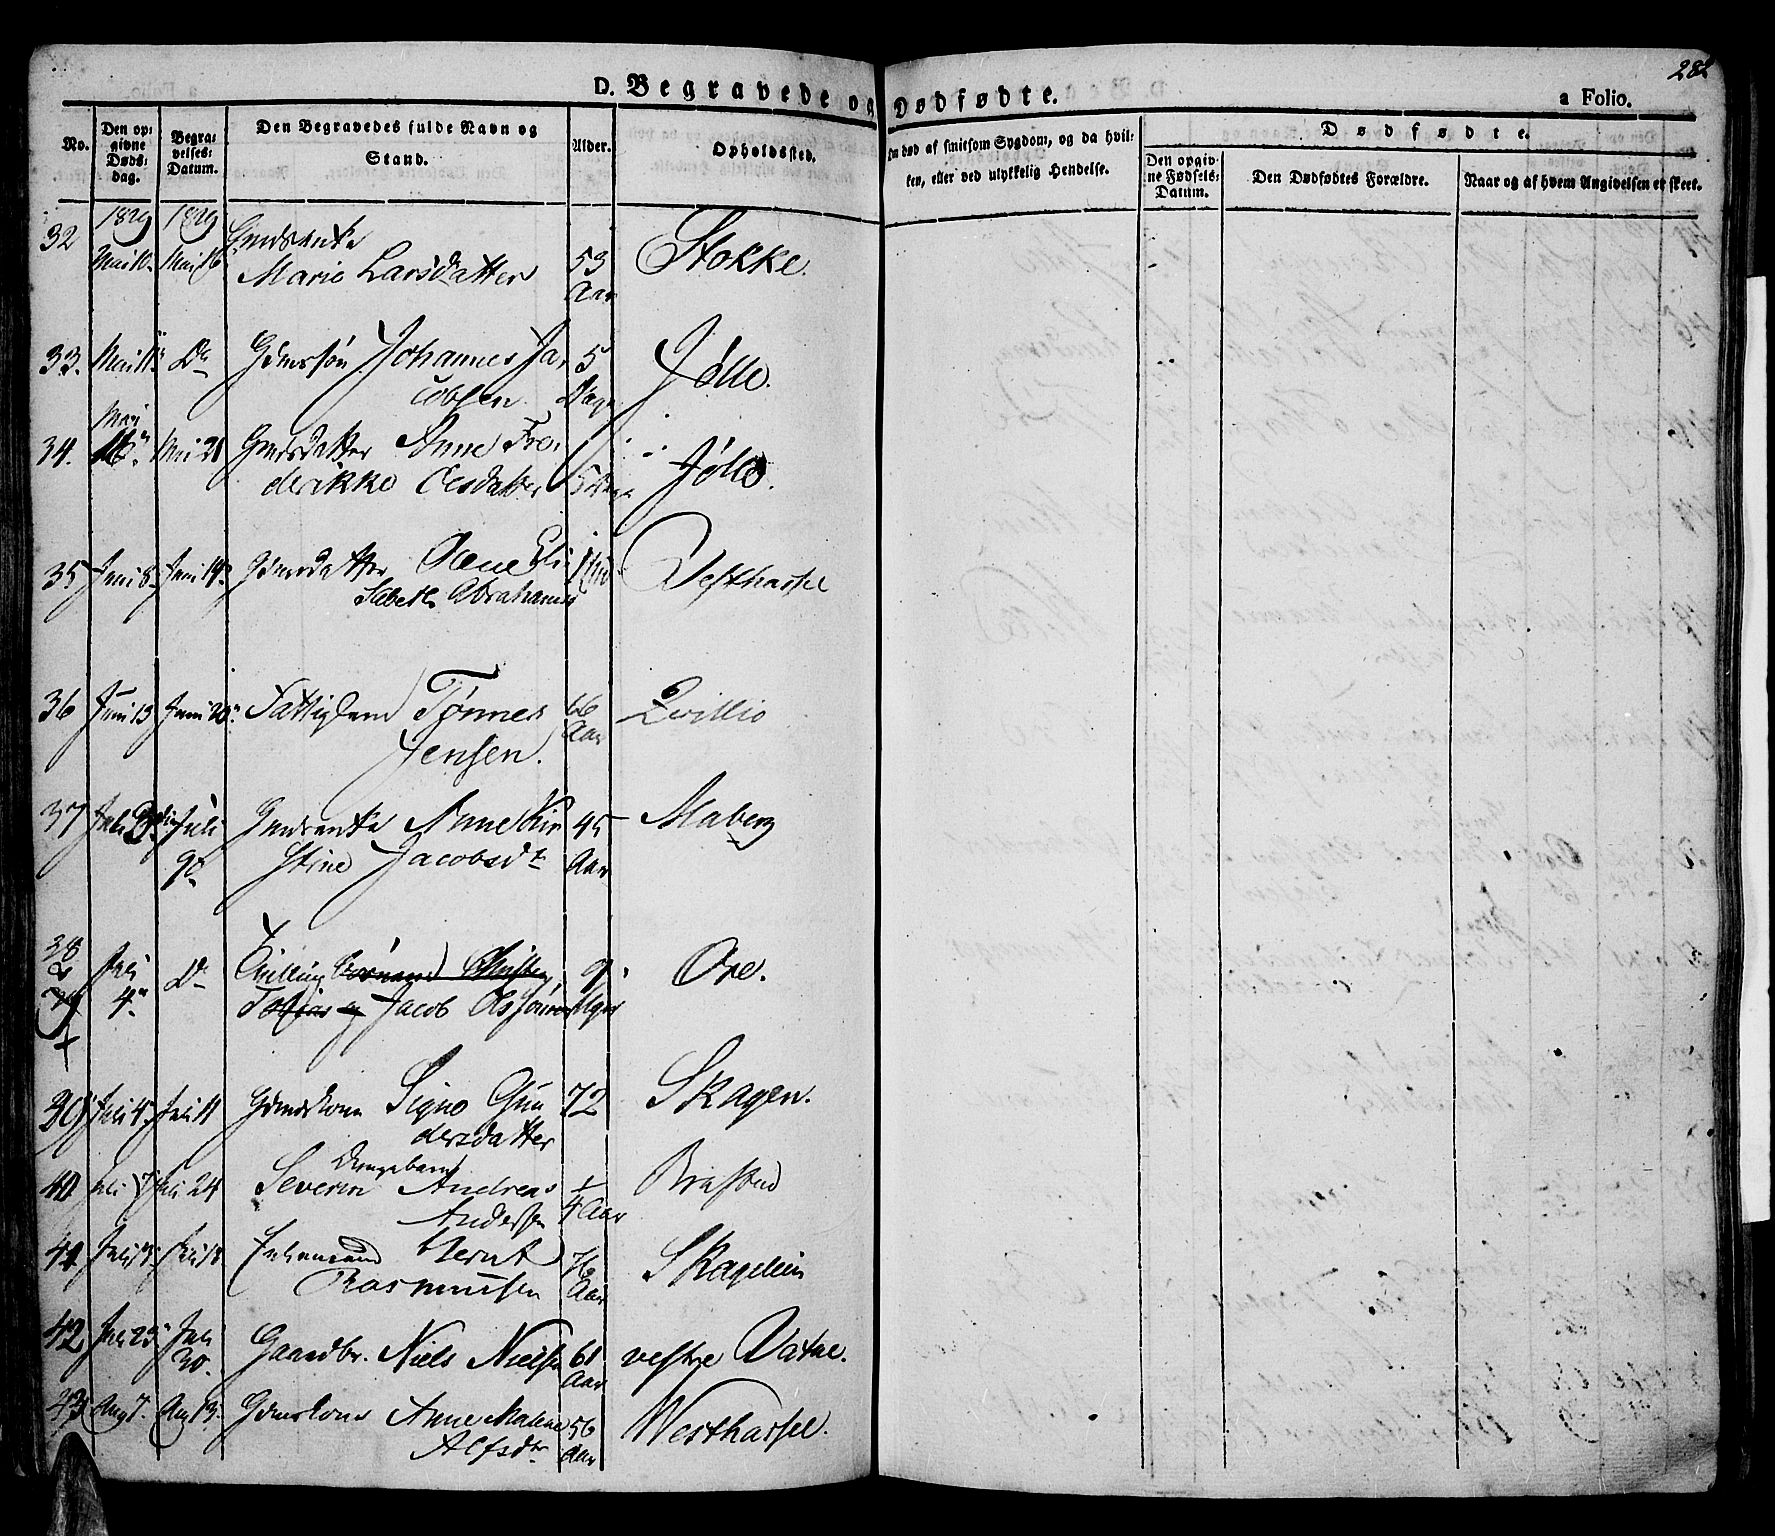 282
D. Begravede og Dødfødte.
a Folio.
No.
Den op:
givne
Døds:
dag.
Begra:
velses:
Datum.
Den Begravedes fulde Navn og
Stand.
Alder.
Opholdssted.
Om død af smitsom Sygdom, og da hvil:
ken, eller ved ulykkelig Hendelse.
Dødfødte.
Den opgiv:
ne Fødsels:
Datum.
Den Dødfødtes Forældre.
Naar og af hvem Angivelsen er skeet.
1829 1829
32 Mai 10. Mai 16 Gmdsenke
Marie Larsdatter 53 Aar Stokke.
33. Mai 11. Do Gdmssøn Johannes Ja-
cobsen. 5 Dage Jølle.
34. Mai 16. Mai 21 Gmdsdatter Anne Fre-
derikke Olsdatter 5 Dage Jølle.
35 Juni 8. Juni 14. Gdmsdatter Olene Eli-
sabeth Abrahams Vesthassel
36 Juni 13 Juni 20 Fattiglem Tønnes
Jensen. 66 Aar Qvillio
37 Juli Juli 9de Gmdsenke Anne Kir-
stine Jacobsdt 45 Aar Maberg
38 Juli 4. Do Tvilling
Tobias og Jacob Olssønner 9 Uger Ore.
39 Juli 4. Juli 11 Gdmdskone Signe Gun-
dersdatter 72 Skagen.
40 Juli 7 Juli 24 Severin Andreas
Andersen 1/4 Aar Brastad
41 Juli Juli 18 Bernt
Rasmussen 76 Aar Skagelien
42 Juli 25 Juli 30. Gaardbr. Niels Nielsen 61 Aar vestre Vatne.
43 Aug 7. Aug 13. Gdmskone Anne Malene
Alfsdtr 56 Aar Westhassel.